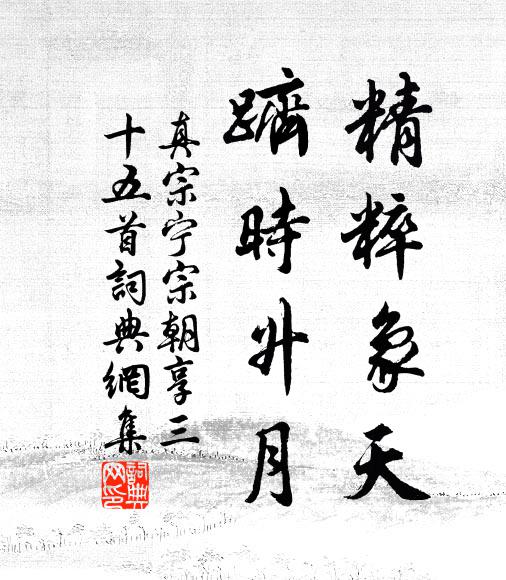 精粹象天
躋時升月
真宗宁宗朝享三
十五首詞典網集
詞典
网印